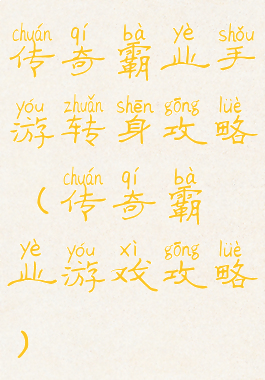 chuán qí bà yè shǒu
传奇霸业手
yóu zhuǎn shēn gōng lüè
游转身攻略
chuán qí bà
(传奇霸
yè yóu xì gōng lüè
业游戏攻略
)